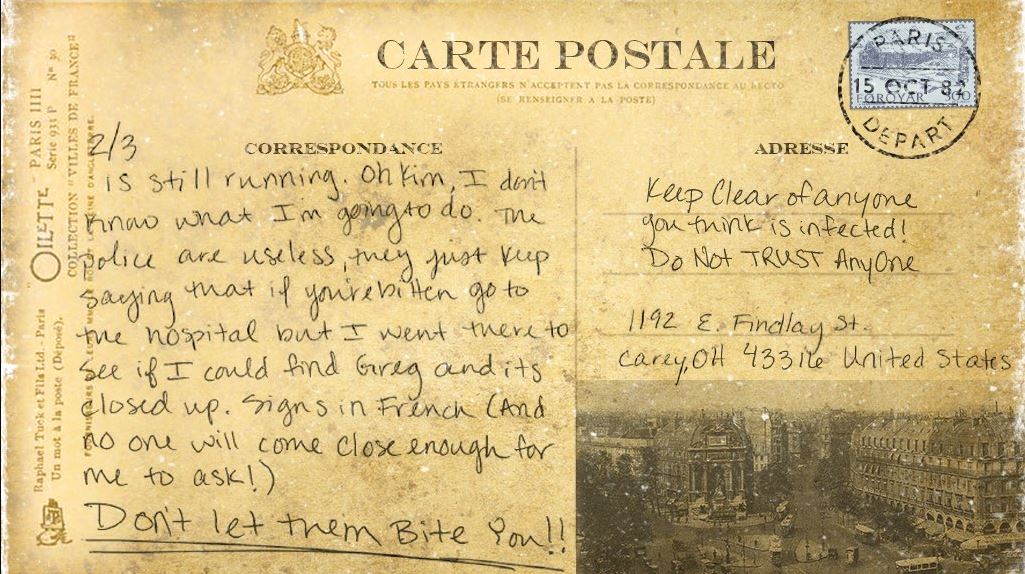 CARTE POSTALE
TOUS LES PAYS ÉTRANGERS N'ACCEPTENT PAS LA CORRESPONDANCE AU RECTO
(SE RENSEIGNER A LA POSTE)
PARIS
15 OCT 82
FØROYAR 300
DEPART
"OILETTE" PARIS IIII
Série 931 P Nº 30
COLLECTION "VILLES DE FRANCE"
Raphael Tuck et Fils Ltd. - Paris
Un mot à la poste (Déposé).
CORRESPONDANCE
2/3
is still running. Oh Kim, I don't
know what I'm going to do. The
police are useless, they just keep
saying that if you're bitten go to
the hospital but I went there to
see if I could find Greg and its
closed up. Signs in French (And
no one will come close enough for
me to ask!)
Don't let them Bite You!!
ADRESSE
Keep Clear of anyone
you think is infected!
Do Not TRUST AnyOne
1192 E. Findlay St.
Carey, OH 43316 United States